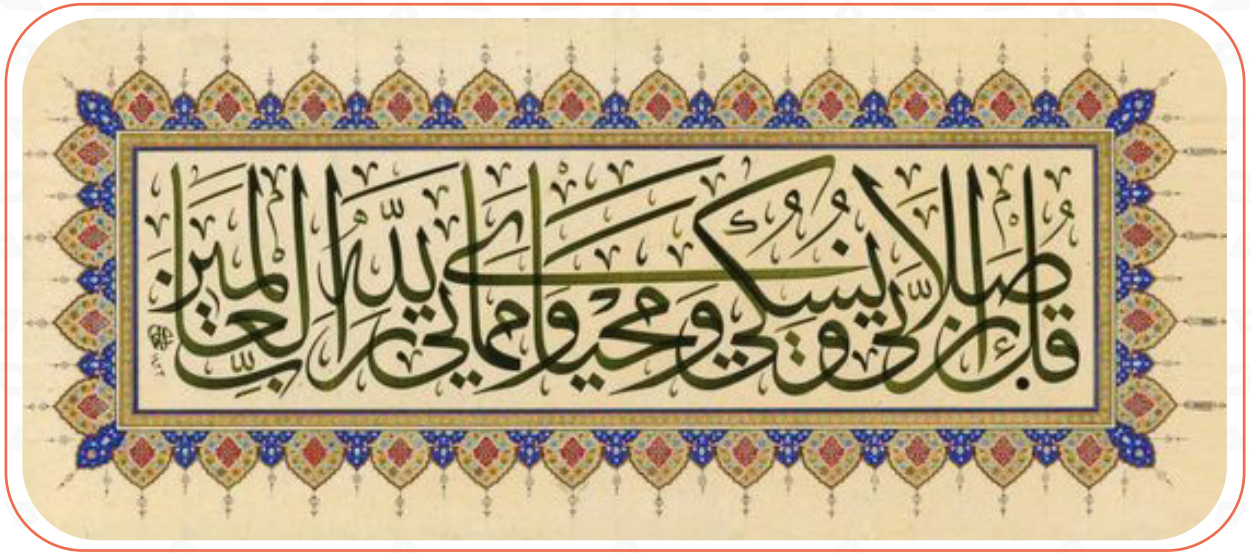 قُلْ إِنَّ صَلَاتِي وَنُسُكِي وَمَحْيَايَ وَمَمَاتِي لِلّٰهِ رَبِّ الْعَالَمِينَ